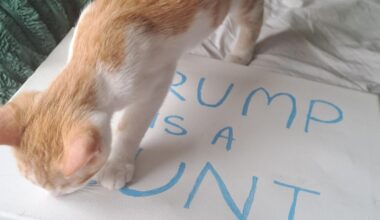 RUMP
IS A
UNT